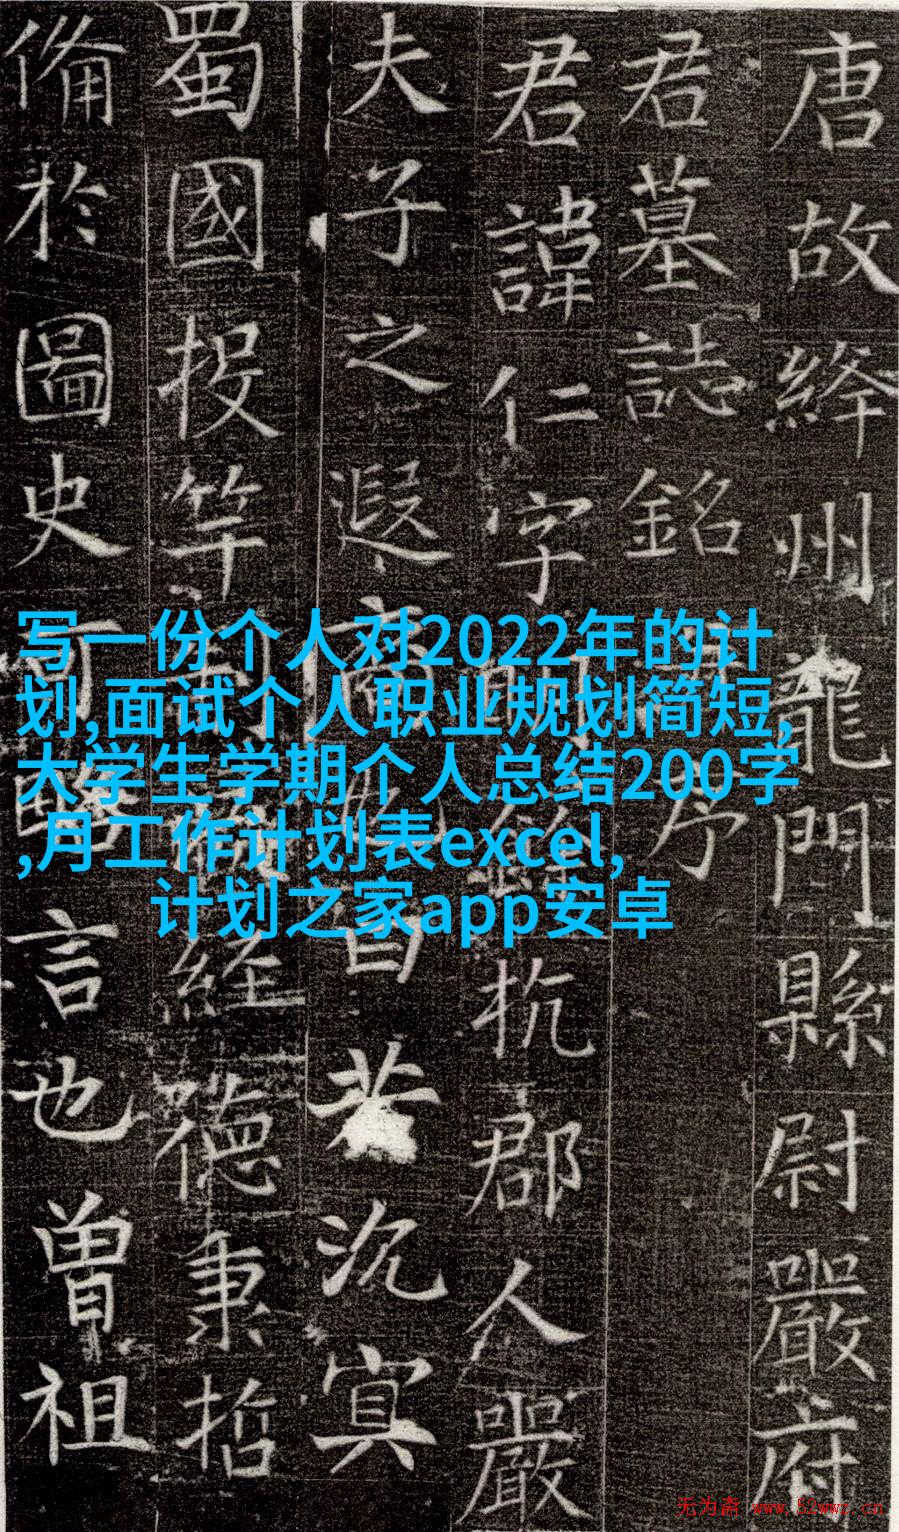 唐故絳州龍門縣尉嚴府
君墓誌銘并序
君諱仁字明餘杭郡人嚴
夫子之遐裔也曰若沉冥
蜀國投竿經德秉哲
備於圖史可略言也曾祖
写一份个人对2022年的计
划,面试个人职业规划简短,
大学生学期个人总结200字
,月工作计划表excel,
计划之家app安卓
无为斋 www.52wwz.cn